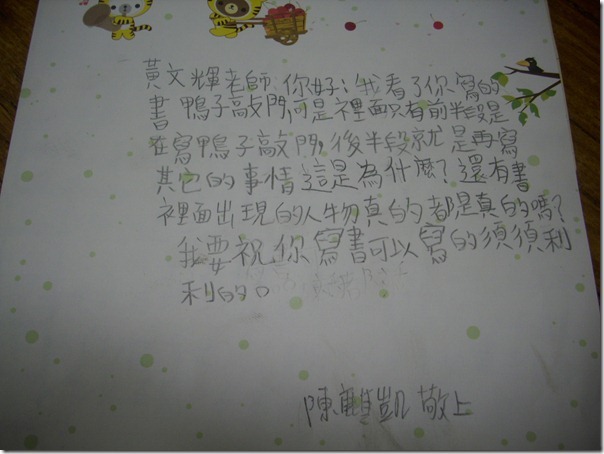 黃文輝老師你好:我看了你寫的
書 鴨子敲門,可是裡面只有前半段是
在寫鴨子敲門,後半段就是再寫
其它的事情這是為什麼?還有書
裡面出現的人物真的都是真的嗎?
我要祝你寫書可以寫的須須利
利的。
陳 凱 敬上